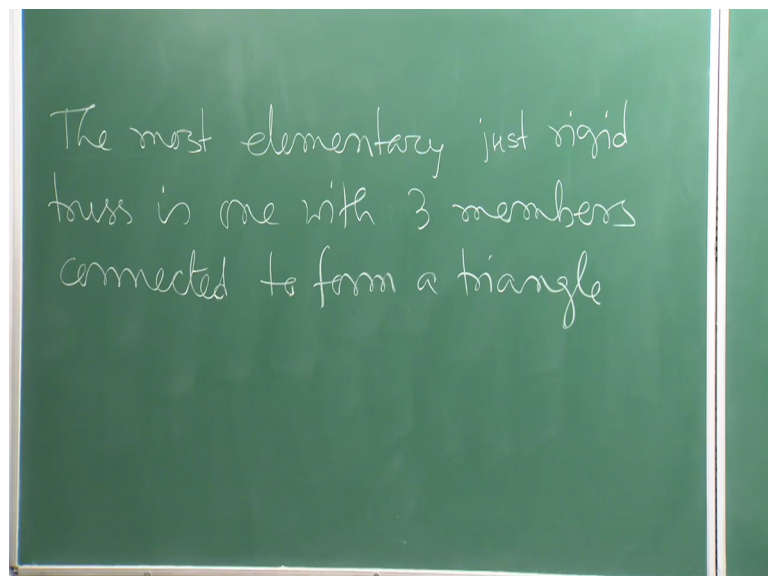 The most elementary just rigid
truss is one with 3 members
connected to form a triangle